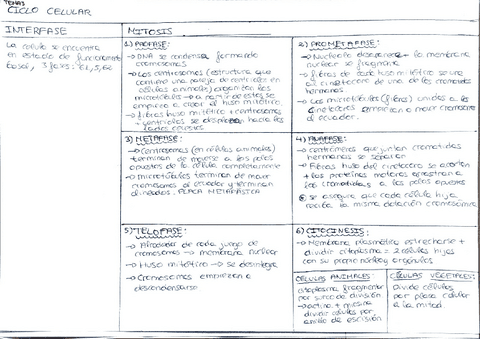 TEMA 3
CICLO CELULAR
INTERFASE
La célula se encuentra
en estado de funcionamiento
basal, 3 fases: G1, S, G2
MITOSIS
1) PROFASE:
→ DNA se condensa formando
cromosomas
→ Los centrosomas (estructura que
contiene una pareja de centriolos en
células animales) organizan los
microtúbulos → a partir de estos se
empieza a crear el huso mitótico
→ Fibras huso mitótico + centrosomas
+ centriolos se desplazan hacia los
lados celulares
2) PROMETAFASE:
→ Nucleolo desaparece → la membrana
nuclear se fragmenta
→ fibras de cada huso mitótico se une
al cinetocoro de una de las cromátidas
hermanas
→ Los microtúbulos (fibras) unidos a los
cinetocoros empiezan a mover cromosomas
al ecuador.
3) METAFASE:
→ Centrosomas (en células animales)
terminan de moverse a los polos
opuestos de la célula completamente
→ microtúbulos terminan de mover
cromosomas al ecuador y terminan
alineados. PLACA METAFÁSICA
4) ANAFASE:
→ centrómeros que juntan cromátidas
hermanas se separan
→ Fibras huso del cinetocoro se acortan
+ las proteínas motoras arrastran a
las cromátidas a los polos opuestos
se asegura que cada célula hija
reciba la misma dotación cromosómica
5) TELOFASE:
→ Alrededor de cada juego de
cromosomas → membrana nuclear
→ Huso mitótico → se desintegra
→ Cromosomas empiezan a
descondensarse
6) CITOCINESIS:
→ Membrana plasmática estrecharse +
dividir citoplasma = 2 células hijas
con su propio núcleo y orgánulos
CÉLULAS ANIMALES
citoplasma fragmentar
por surco de división
→ actina + miosina
dividir células por
anillo de escisión
CÉLULAS VEGETALES:
Divide células
por placa celular
a la mitad.